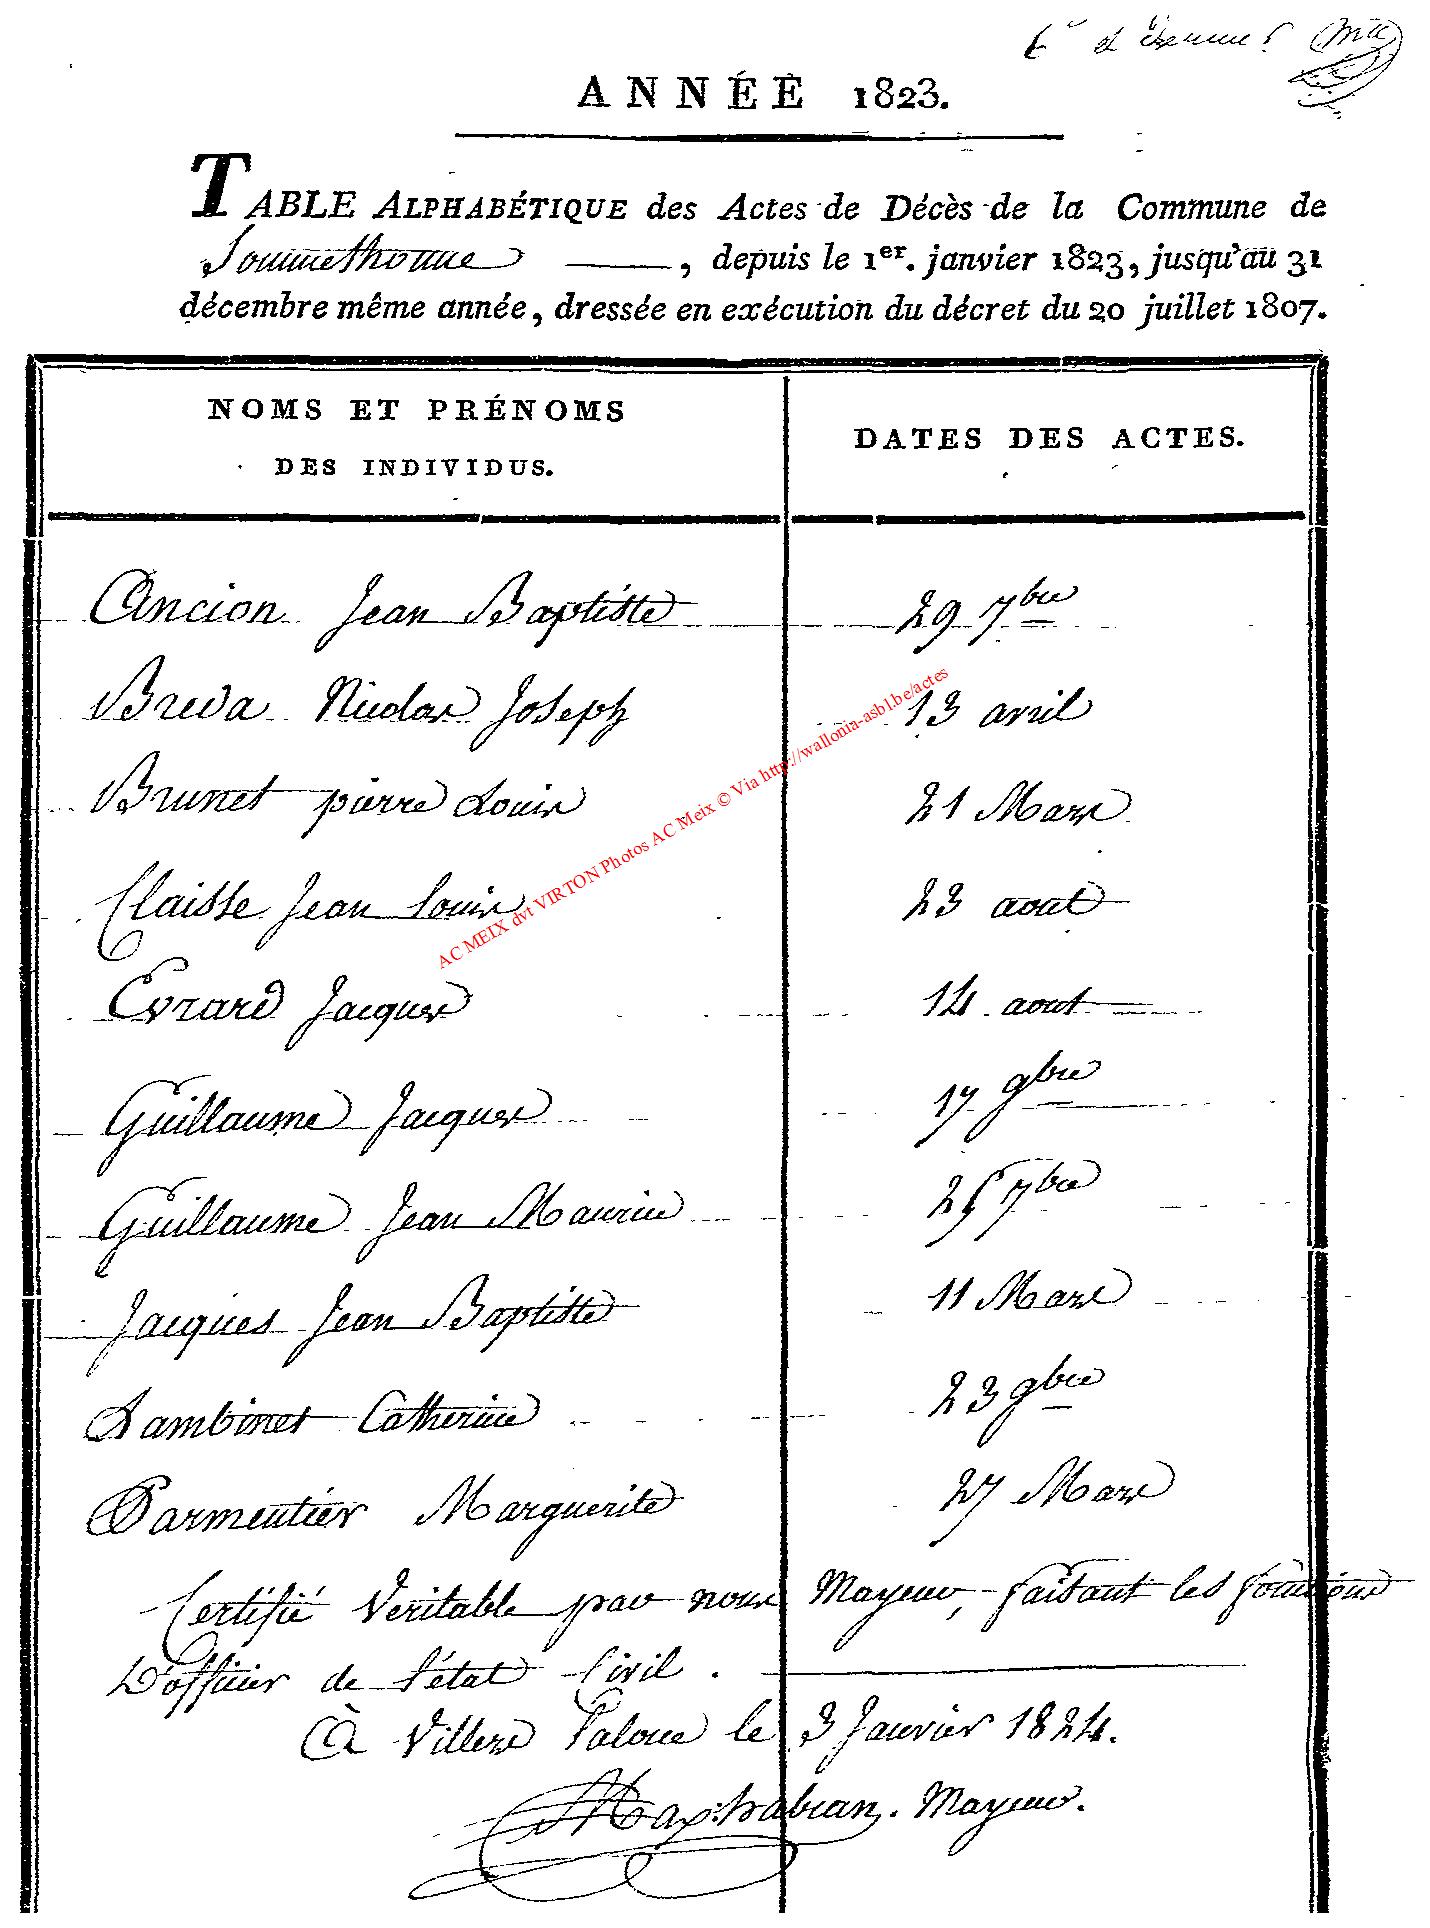 ANNÉE 1823.
TABLE ALPHABÉTIQUE des Actes de Décès de la Commune de
Sommethonne, depuis le 1er. janvier 1823, jusqu'au 31
décembre même année, dressée en exécution du décret du 20 juillet 1807.
NOMS ET PRÉNOMS
DES INDIVIDUS.
DATES DES ACTES.
Ancion Jean Baptiste 29 7bre
Breda Nicolas Joseph 13 avril
Brunet pierre Louis 21 Mars
Claisse Jean Louis 23 aout
Evrard Jacques 14 aout
Guillaume Jacques 17 9bre
Guillaume Jean Maurice 25 7bre
Jacques Jean Baptiste 11 Mars
Lambinet Catherine 23 9bre
Parmentier Marguerite 27 Mars
Certifié Veritable par nous Mayeur, faisant les fonctions
D'officier de l'état Civil.
À Villers Laloue le 3 Janvier 1824.
Mayeur.
AC MEIX dvt VIRTON Photos AC Meix © Via http://wallonia-asbl.be/actes